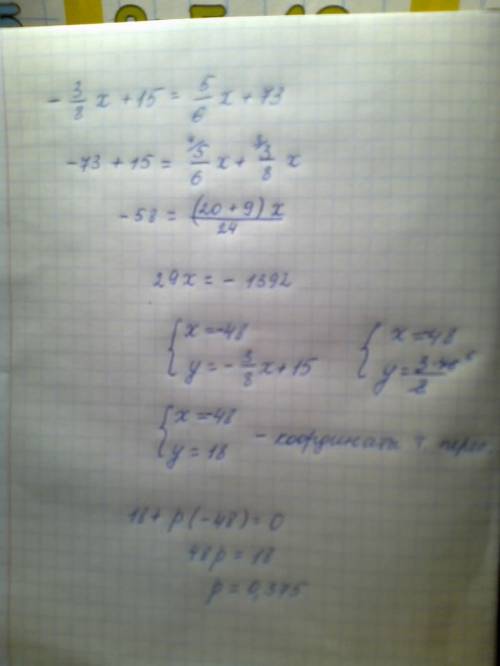 - 3/8 x + 15 = 5/6 x + 73
-73 + 15 = ⁴⁄5/6 x + ³⁄3/8 x
-58 = (20 + 9) x / 24
29x = - 1392
{ x = -48 { x = -48
{ y = - 3/8 x + 15 { y =
{ x = -48
{ y = 18 - координаты т. перес
18 + p(-48) = 0
48p = 18
p = 0,375